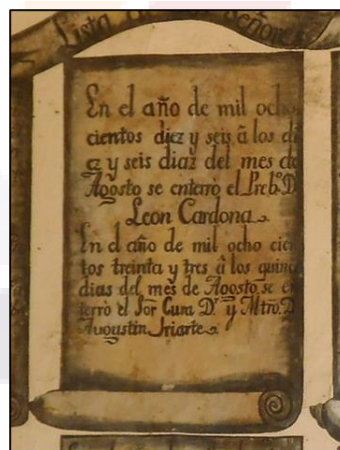 Lista Señores
En el año de mil ocho
cientos diez y seis â los di
ez y seis diaz del mes de
Agosto se enterrò el Preb.º D.
Leon Cardona.
En el año de mil ocho cien
tos treinta y tres â los quince
dias del mes de Agosto, se en
terrò el Sor Cura D.r y Mtrô. D.
Augustin Iriarte.